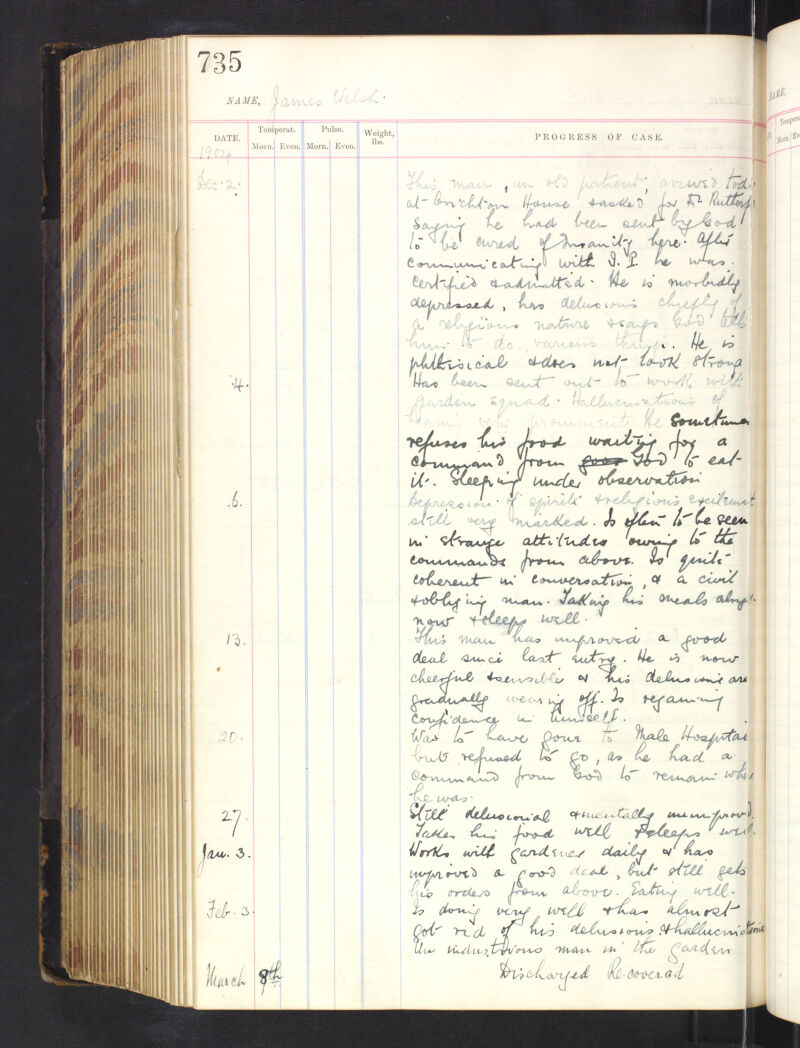 735
NAME, James Welsh.
DATE.
Temperat.
Pulse.
Weight, lbs.
PROGRESS OF CASE.
Morn. Even. Morn. Even.
Dec. 2. This man, an old patient, arrived tod
at Crichton House & asked for Dr. Rutherf
saying he had been sent by God
to be cured of Insanity here. After
communicating with I. P. he was
certified & admitted. He is morbidly
depressed, has delusions chiefly of
a religious nature & says God tells
him to do various things. He is
phthisical & does not look strong
4. Has been sent out to work with
garden squad. Hallucinations of
very prominent. He sometimes
refuses his food waiting for a
command from God to eat
it. Sleeping under observation
6. Depression of spirits & religious excitement
still very marked. Is often to be seen
in strange attitudes owing to the
commands from above. Is quite
coherent in conversation, & a civil
& obliging man. Taking his meals
now & sleeps well.
13. This man has improved a good
deal since last entry. He is now
cheerful & sensible & his delusions are
gradually wearing off. Is regaining
confidence in himself.
20. Was to have gone to Male Hospital
but refused to go, as he had a
command from God to remain where
he was.
27. Still delusional & mentally unimproved.
Takes his food well & sleeps well.
Jan. 3. Works with gardener daily & has
improved a good deal, but still gets
his orders from above. Eating well.
Feb. 3. Is doing very well & has almost
got rid of his delusions & hallucinations
An industrious man in the garden
March 8th Discharged Recovered
NAME,